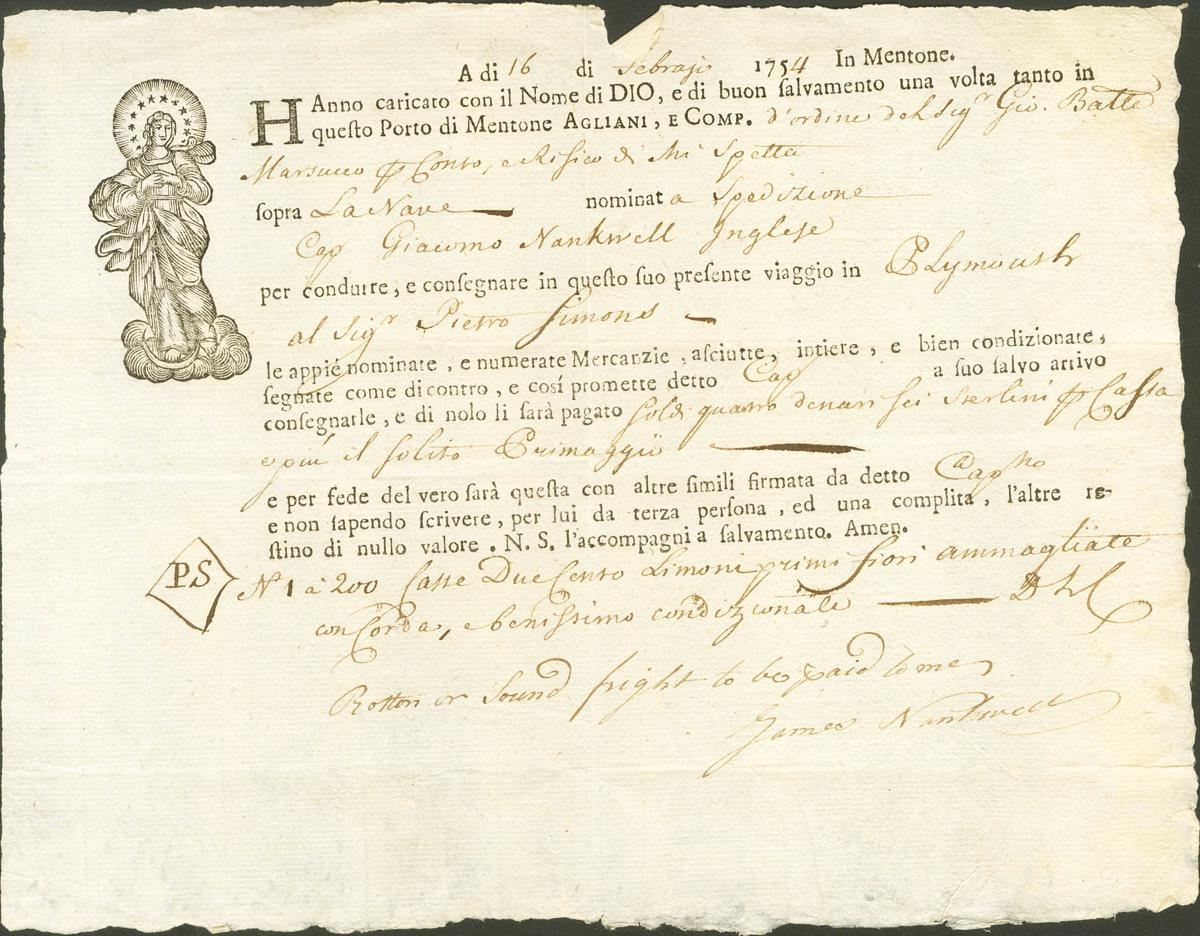 A di 16 di febrajo 1754 In Mentone.
HAnno caricato con il Nome di DIO, e di buon ſalvamento una volta tanto in
queſto Porto di Mentone AGLIANI, E COMP. d'ordine del Sigr Gio. Batta
Marsucco ꝑ Conto, e Risico di chi Spetta
ſopra La Nave nominat a Spedizione
Cap Giacomo Nankwell Inglese
per condurre, e conſegnare in queſto ſuo preſente viaggio in Plymouth
al Sigr Pietro Simons
le appiè nominate, e numerate Mercanzie, aſciutte, intiere, e bien condizionate,
ſegnate come di contro, e cosí promette detto Cap a ſuo ſalvo arrivo
conſegnarle, e di nolo li ſarà pagato Soldi quattro denari Sei Sterlini ꝑ Caſsa
e piu il Solito Primaggio
e per fede del vero ſarà queſta con altre ſimili firmata da detto Capno
e non ſapendo ſcrivere, per lui da terza perſona, ed una complita, l'altre re-
ſtino di nullo valore. N. S. l'accompagni a ſalvamento. Amen.
PS
No 1 à 200 Casse Due Cento Limoni primi fiori ammagliate
con Corda, e beniſsimo condizionate
Rotton or Sound fright to be paid to me
James Nankwell